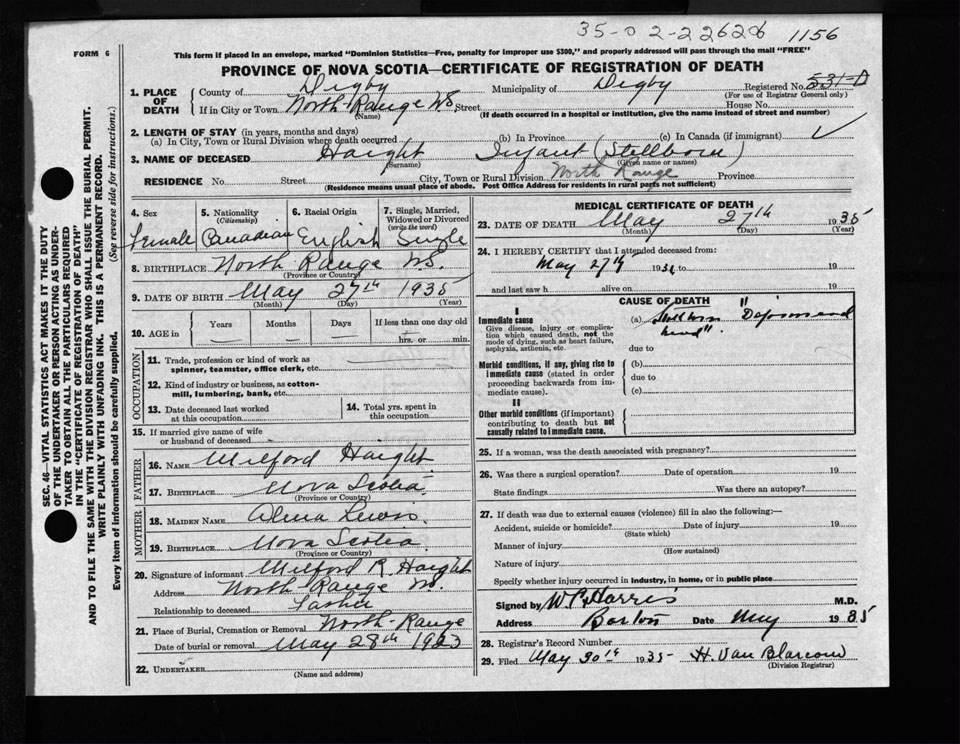 35-0 2-22626 1156
FORM 6
This form if placed in an envelope, marked "Dominion Statistics—Free, penalty for improper use $300," and properly addressed will pass through the mail "FREE"
PROVINCE OF NOVA SCOTIA—CERTIFICATE OF REGISTRATION OF DEATH
1. PLACE OF DEATH
County of Digby Municipality of Digby Registered No. 531-D
(For use of Registrar General only)
If in City or Town North Range NS Street House No.
(Name) (If death occurred in a hospital or institution, give the name instead of street and number)
2. LENGTH OF STAY (in years, months and days)
(a) In City, Town or Rural Division where death occurred (b) In Province (c) In Canada (if immigrant) ✓
3. NAME OF DECEASED Haight Infant (Stillborn)
(Surname) (Given name or names)
RESIDENCE No. Street City, Town or Rural Division North Range Province
(Residence means usual place of abode. Post Office Address for residents in rural parts not sufficient)
4. Sex
Female
5. Nationality
(Citizenship)
Canadian
6. Racial Origin
English
7. Single, Married, Widowed or Divorced
(write the word)
Single
8. BIRTHPLACE North Range N.S.
(Province or Country)
9. DATE OF BIRTH May 27th 1935
(Month) (Day) (Year)
10. AGE in
Years Months Days If less than one day old
hrs. or min.
OCCUPATION
11. Trade, profession or kind of work as
spinner, teamster, office clerk, etc.
12. Kind of industry or business, as cotton-
mill, lumbering, bank, etc.
13. Date deceased last worked
at this occupation
14. Total yrs. spent in
this occupation
15. If married give name of wife
or husband of deceased
FATHER
16. NAME Milford Haight
17. BIRTHPLACE Nova Scotia
(Province or Country)
MOTHER
18. MAIDEN NAME Alma Lewis
19. BIRTHPLACE Nova Scotia
(Province or Country)
20. Signature of informant Milford R. Haight
Address North Range NS.
Relationship to deceased Father
21. Place of Burial, Cremation or Removal North Range
Date of burial or removal May 28th 1923
22. UNDERTAKER
(Name and address)
MEDICAL CERTIFICATE OF DEATH
23. DATE OF DEATH May 27th 1935
(Month) (Day) (Year)
24. I HEREBY CERTIFY that I attended deceased from:
May 27th 193 to 19
and last saw h alive on 19
CAUSE OF DEATH
I
Immediate cause
Give disease, injury or complica-
tion which caused death, not the
mode of dying, such as heart failure,
asphyxia, asthenia, etc.
(a) Stillborn "Deformed
head".
due to
Morbid conditions, if any, giving rise to
immediate cause (stated in order
proceeding backwards from im-
mediate cause).
(b)
due to
(c)
II
Other morbid conditions (if important)
contributing to death but not
causally related to immediate cause.
25. If a woman, was the death associated with pregnancy?
26. Was there a surgical operation? Date of operation 19
State findings Was there an autopsy?
27. If death was due to external causes (violence) fill in also the following:—
Accident, suicide or homicide? Date of injury 19
(State which)
Manner of injury
(How sustained)
Nature of injury
Specify whether injury occurred in industry, in home, or in public place
Signed by W C Harris M.D.
Address Barton Date May 1935
28. Registrar's Record Number
29. Filed May 30th 1935 H. Van Blarcom
(Division Registrar)
SEC. 46—VITAL STATISTICS ACT MAKES IT THE DUTY
OF THE UNDERTAKER OR PERSON ACTING AS UNDER-
TAKER TO OBTAIN ALL THE PARTICULARS REQUIRED
IN THE "CERTIFICATE OF REGISTRATION OF DEATH"
AND TO FILE THE SAME WITH THE DIVISION REGISTRAR WHO SHALL ISSUE THE BURIAL PERMIT.
WRITE PLAINLY WITH UNFADING INK. THIS IS A PERMANENT RECORD.
Every item of information should be carefully supplied. (See reverse side for instructions.)